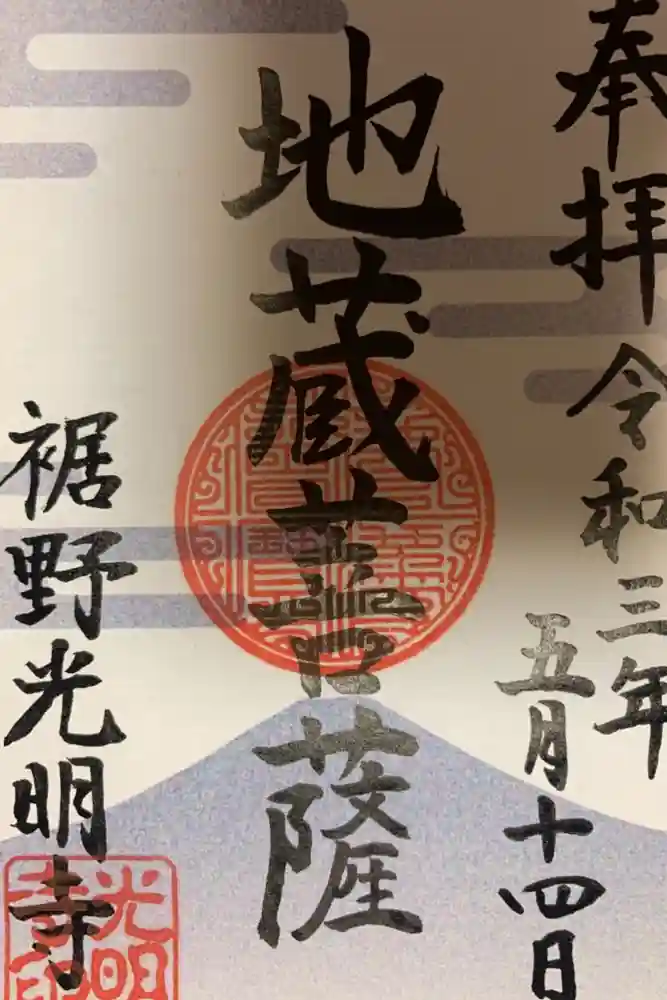 奉拝
令和三年
五月十四日
地蔵菩薩
裾野光明寺
光明
寺印